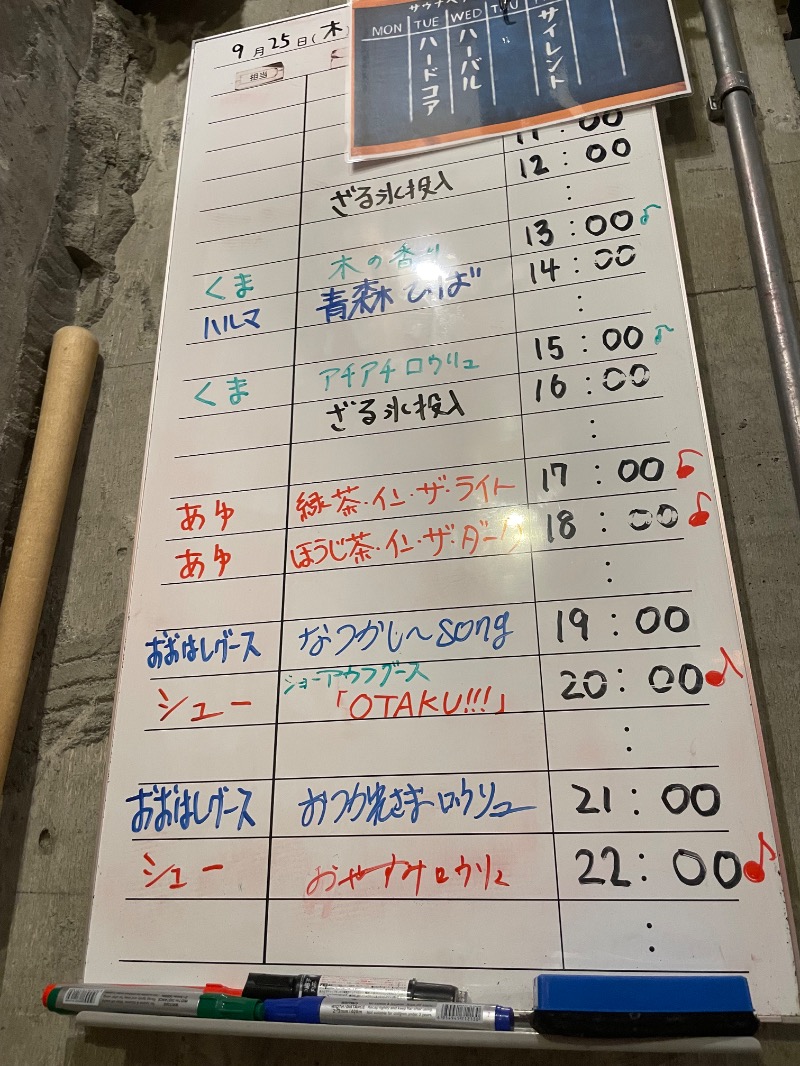 9月25日(木)
担当
MON TUE WED THU
ハードコア
ハーバル
サイレント
11:00
ざる氷投入 12:00
:
13:00♪
くま 木の香り 14:00
ハルマ 青森ひば :
15:00♪
くま アチアチロウリュ 16:00
ざる氷投入 :
17:00♪
あゆ 緑茶・イン・ザ・ライト 18:00♪
あゆ ほうじ茶・イン・ザ・ダーク :
おおはしグース なつかし〜song 19:00
ショーアウフグース
シュー 「OTAKU!!!」 20:00♪
:
おおはしグース おつかれさまーロウリュー 21:00
シュー おやすみロウリュ 22:00♪
: